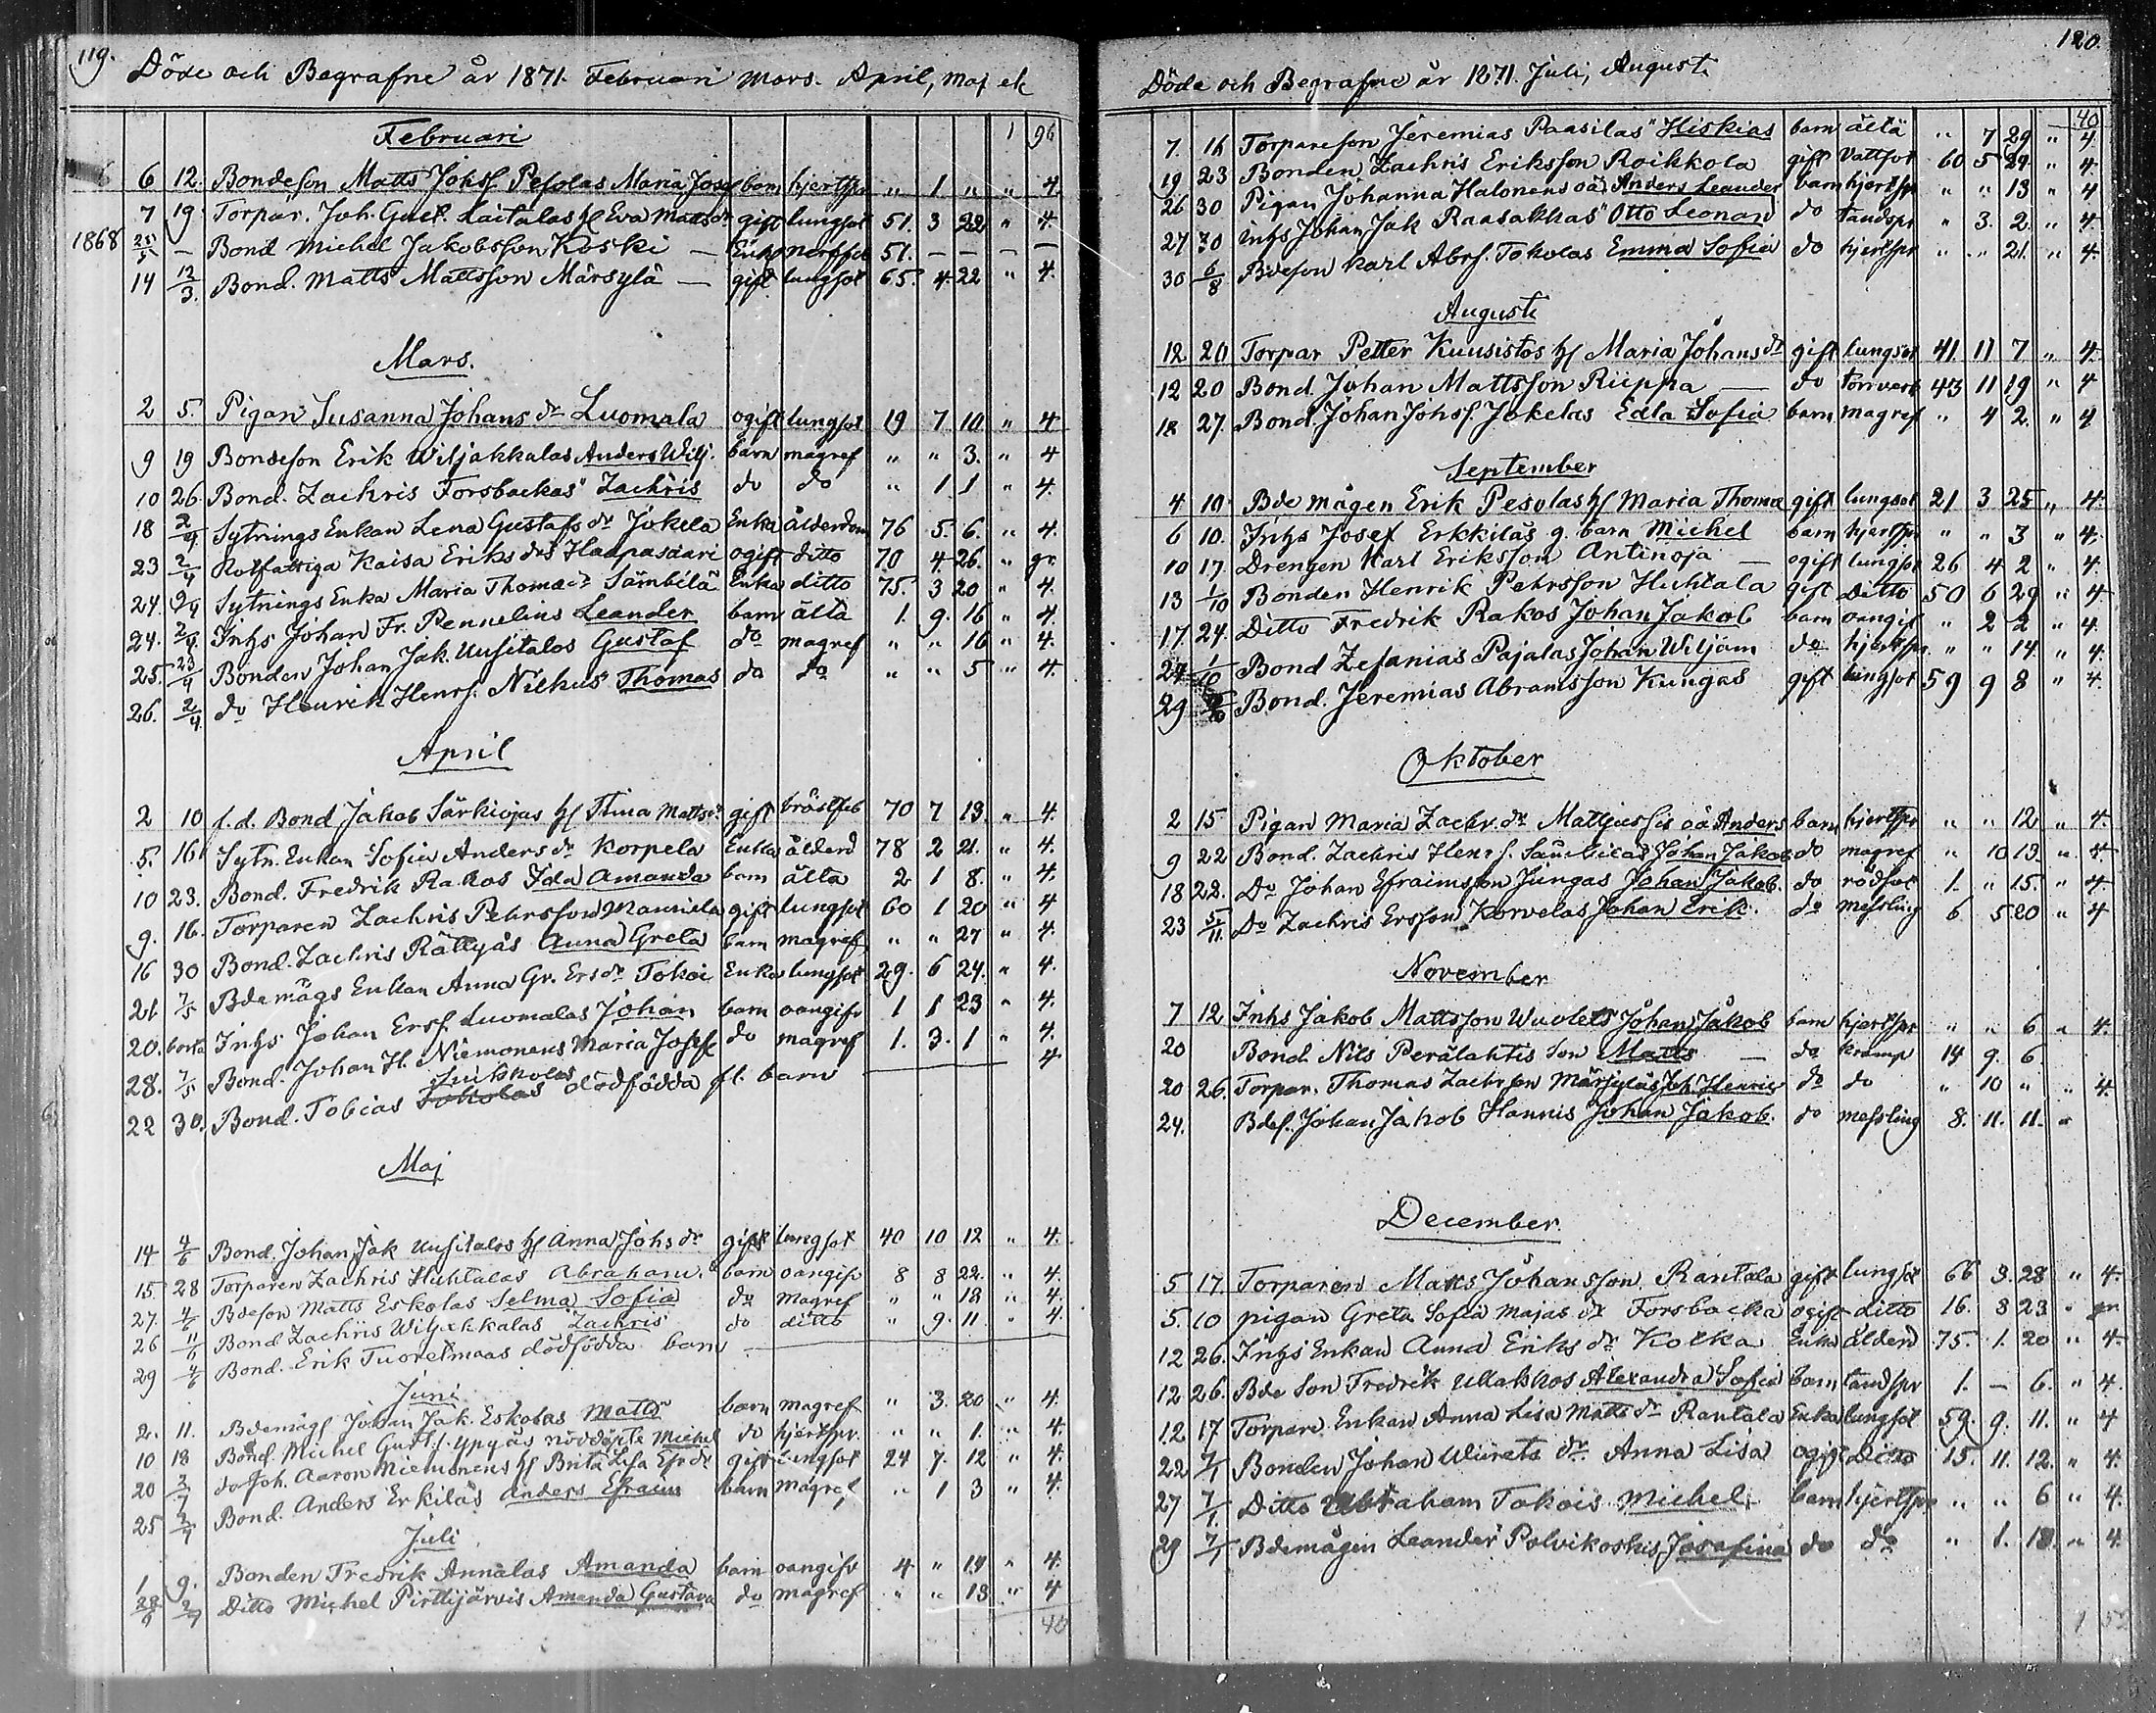 119.
Döde och Begrafne år 1871. Februari Mars. April, Maj etc
1 96
Februari
6 12. Bondeson Matts Johsf Pesolas Maria Josef barn hjertspr " 1 " " 4.
7 19. Torpar. Joh. Gust. Laitalas hf Eva Mattsdr gift lungsot 51. 3 22 " 4.
1868 25/5 — Bond Michel Jakobsson Koski — Enkl nerffeb 51. — — —
14 12/3. Bond. Matts Mattsson Märsylä — gift lungsot 65. 4. 22 " 4.
Mars.
2 5. Pigan Susanna Johansdr Luomala ogift lungsot 19 7 10 " 4
9 19 Bondeson Erik Wiljakkalas Anders Wilj. barn magref " " 3. " 4
10 26. Bond. Zachris Forsbackas" Zachris do do " 1 1 " 4.
18 2/4 Sytnings Enkan Lena Gustafsdr Jokela Enka ålderdom 76 5. 6. " 4.
23 2/4 Rotfattiga Kaisa Eriksdr Haapasaari ogift ditto 70 4 26. " gr
24. 2/4 Sytnings Enka Maria Thomædr Sämbilä Enka ditto 75. 3 20 " 4.
24. 2/4. Inhs Johan Fr. Pennelins Leander barn älta 1. 9. 16 " 4.
25. 23/4 Bonden Johan Jak. Uusitalos Gustaf do magref " " 16 " 4.
26. 2/4. do Henrik Henrs. Nilkus Thomas do do " " 5 " 4.
April
2 10 f.d. Bond Jakob Särkiojas hf Stina Mattsdr gift bröstfeb 70 7 13. " 4.
5. 16 Sytn. Enkan Sofia Andersdr Korpela Enka ålderd 78 2 21. " 4.
10 23. Bond. Fredrik Rakos Ida Amanda barn älta 2 1 8. " 4.
9. 16. Torparen Zachris Pehrsson Mannila gift lungsot 60 1 20 " 4
16 30 Bond. Zachris Rättyäs Anna Greta barn magref " " 27 " 4.
21 7/5 Bdemågs Enkan Anna Gr. Ersdr Tokoi Enka lungsot 29. 6 24. " 4.
20. borta Inhs Johan Ersf. Luomalas Johan barn oangifv 1 1 23 " 4.
28. 7/5 Bond. Johan H. Niemonens Maria Josefi do magref 1. 3. 1 " 4.
22 30. Bond. Tobias dödfödda fl. barn — 4
Maj
14 4/6 Bond. Johan Jak Uusitalos hf Anna Johsdr gift lungsot 40 10 12 " 4.
15 28 Torparen Zachris Huhtalas Abraham. barn oangifv 8 8 22. " 4.
27. 4/6 Bdeson Matts Eskolas Selma Sofia do magref " " 18 " 4.
26 11/6 Bond Zachris Wiljakkalas Zachris do ditto " 9. 11. " 4.
29 4/6 Bond. Erik Tuorelmaas dödfödda barn —
Juni
2. 11. Bdemågs Johan Jak. Eskolas Matts barn magref " 3. 20 " 4.
10 18 Bond. Michel Gustf. Ypyäs nöddöpte Michel do hjertspr. " " 1. " 4.
20 2/7 do Joh. Aaron Niemonens hf Brita Lisa Efrdr gift lungsot 24 7. 12 " 4.
25 2/7 Bond. Anders Erkiläs Anders Efraim barn magref " 1 3 " 4.
Juli
1 9. Bonden Fredrik Annalas Amanda barn oangifv 4 " 14 " 4.
28/6 2/7 Ditto Michel Pirttijärvis Amanda Gustava do magref " " 13 " 4
40
120.
Döde och Begrafne år 1871. Juli, Augusti
40
7. 16 Torpareson Jeremias Paasilas" Hiskias barn ältä " 7 29 " 4.
19 23 Bonden Zachris Eriksson Roikkola gift Vattsot 60 5 29. " 4.
26 30 Pigan Johanna Halonens oä Anders Leander barn hjertspr " " 13 " 4
27 30 Inhs Johan Jak Raasakkas" Otto Leonard do tandspr " 3. 2. " 4.
30 6/8 Bdeson Karl Abrs. Tokolas Emma Sofia do hjertspr " " 21. " 4.
Augusti
12 20 Torpar Petter Kuusistos hf Maria Johansdr gift lungsot 41. 11 7 " 4.
12 20 Bond. Johan Mattsson Riippa — do torrverk 43 11 19 " 4
18 27. Bond. Johan Johsf. Jokelas Edla Sofia barn magref " 4 2. " 4
September
4 10. Bde mågen Erik Pesolas hf Maria Thomæ gift lungsot 21 3 25 " 4.
6 10. Inhs Josef Erkkiläs g. barn Michel barn hjertspr " " 3 " 4.
10 17. Drengen Karl Eriksson Antinoja — ogift lungsot 26 4 2 " 4.
13 1/10 Bonden Henrik Pehrsson Huhtala gift Ditto 50 6 29 " 4.
17. 24. Ditto Fredrik Rakos Johan Jakob barn oangif " 2 2 " 4.
24 1/10 Bond Zefanias Pajalas Johan Wiljam do hjertspr. " " 14. " 4.
29 Bond. Jeremias Abramsson Kungas gift lungsot 59 9 8 " 4.
Oktober
2 15 Pigan Maria Zachr.dr Mattjussis oä Anders barn hjertspr " " 12 " 4.
9 22 Bond. Zachris Henrs. Johan Jakob do magref " 10 13. " 4.
18 22. Do Johan Efraimsson Jungas Johan Jakob. do rödsot 1. " 15. " 4
23 5/11. Do Zachris Ersson Korvelas Johan Erik. do messling 6 5 20 " 4
November
7 12 Inhs Jakob Mattsson Wuolets Johan Jakob barn hjertspr " " 6 " 4.
20 Bond. Nils Perälahtis son Matts — do kramp 14 9. 6
20 26. Torpar. Thomas Zachrson Märsyläs Joh Henric do do " 10 " " 4.
24. Bdes. Johan Jakob Hannis Johan Jakob. do messling 8. 11. 11. "
December.
5 17. Torparen Matts Johansson Rantala gift lungsot 66 3. 28 " 4.
5. 10 pigan Greta Sofia Majasdr Forsbacka ogift ditto 16. 8 23 " gr
12 26. Inhs Enkan Anna Eriksdr Kotka Enka ålderd 75. 1. 20 " 4.
12 26. Bde Son Fredrik Ullakkos Alexandra Sofia barn tandspr 1. — 6. " 4.
12 17 Torpare Enkan Anna Lisa Mattsdr Rantala Enka lungsot 59. 9. 11. " 4
22 7/1 Bonden Johan Wiiretsdr Anna Lisa ogift Ditto 15. 11. 12. " 4.
27 7/1. Ditto Abraham Tokois Michel. barn hjertspr " " 6 " 4.
29 7/1 Bdemågen Leander Polvikoskis Josefina do do " 1. 18. " 4.
1 52